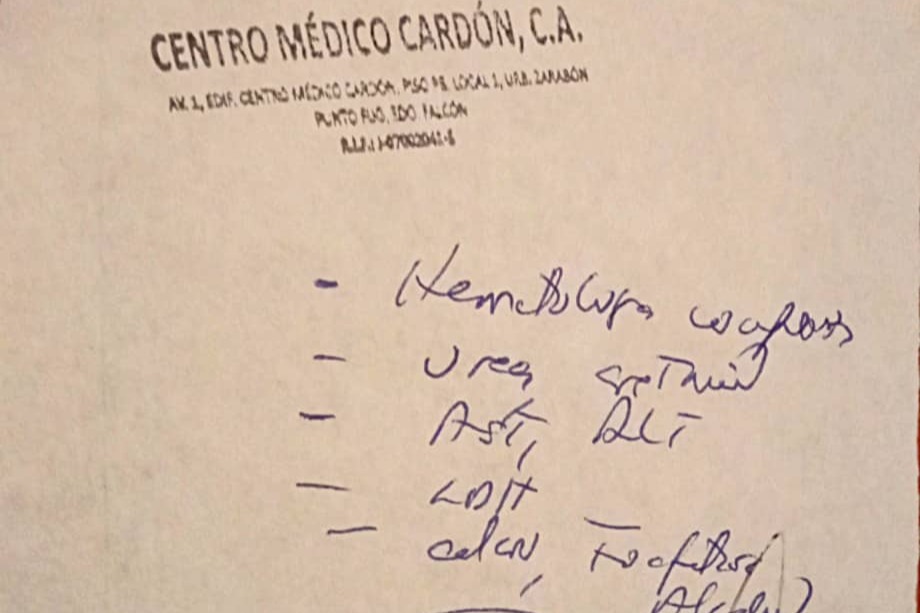 CENTRO MÉDICO CARDÓN, C.A.
AV. 1, EDIF. CENTRO MÉDICO CARDÓN, PISO PB, LOCAL 1, URB. ZARABÓN
PUNTO FIJO, EDO. FALCÓN
- Hematología completa
- Urea creatinina
- AST, ALT
- LDH
- Calcio,